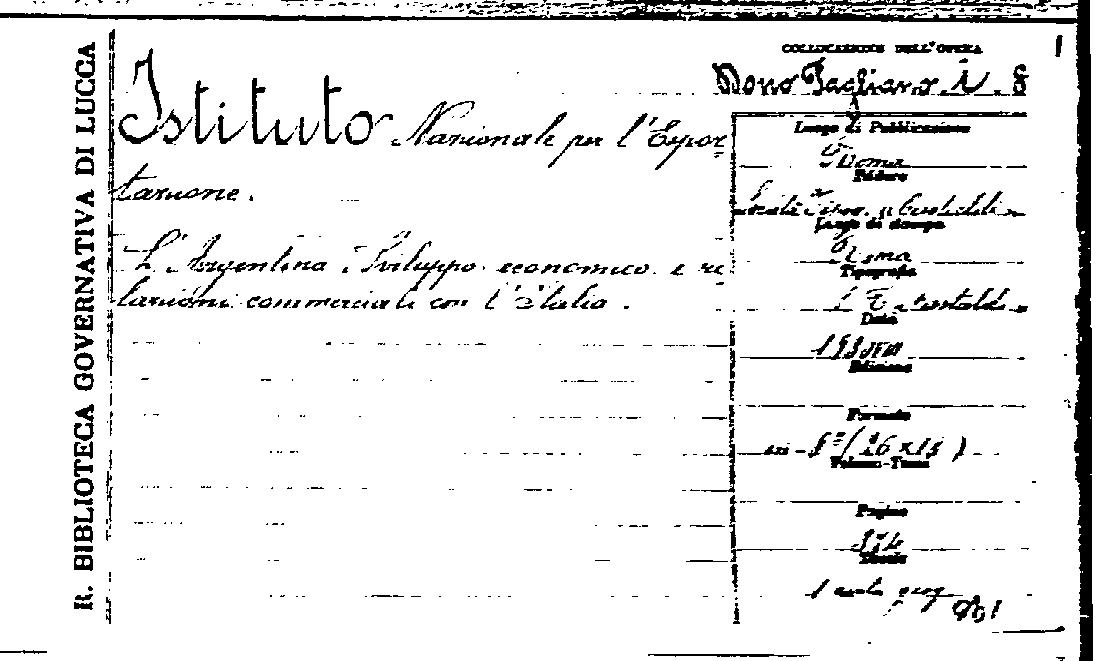 R. BIBLIOTECA GOVERNATIVA DI LUCCA
COLLOCAZIONE DELL'OPERA
Dono Pagliano. i. 8
Istituto Nazionale per l'Espor=
tazione.
L'Argentina. Sviluppo economico e re
lazioni commerciali con l'Italia.
Luogo di Pubblicazione
Roma
Editore
Società Tipo.
Luogo di stampa
Roma
Tipografia
Data
Edizione
Formato
in - 8º (26 x 18)
Volume-Tomo
Pagine
Tavole
1 carta geog